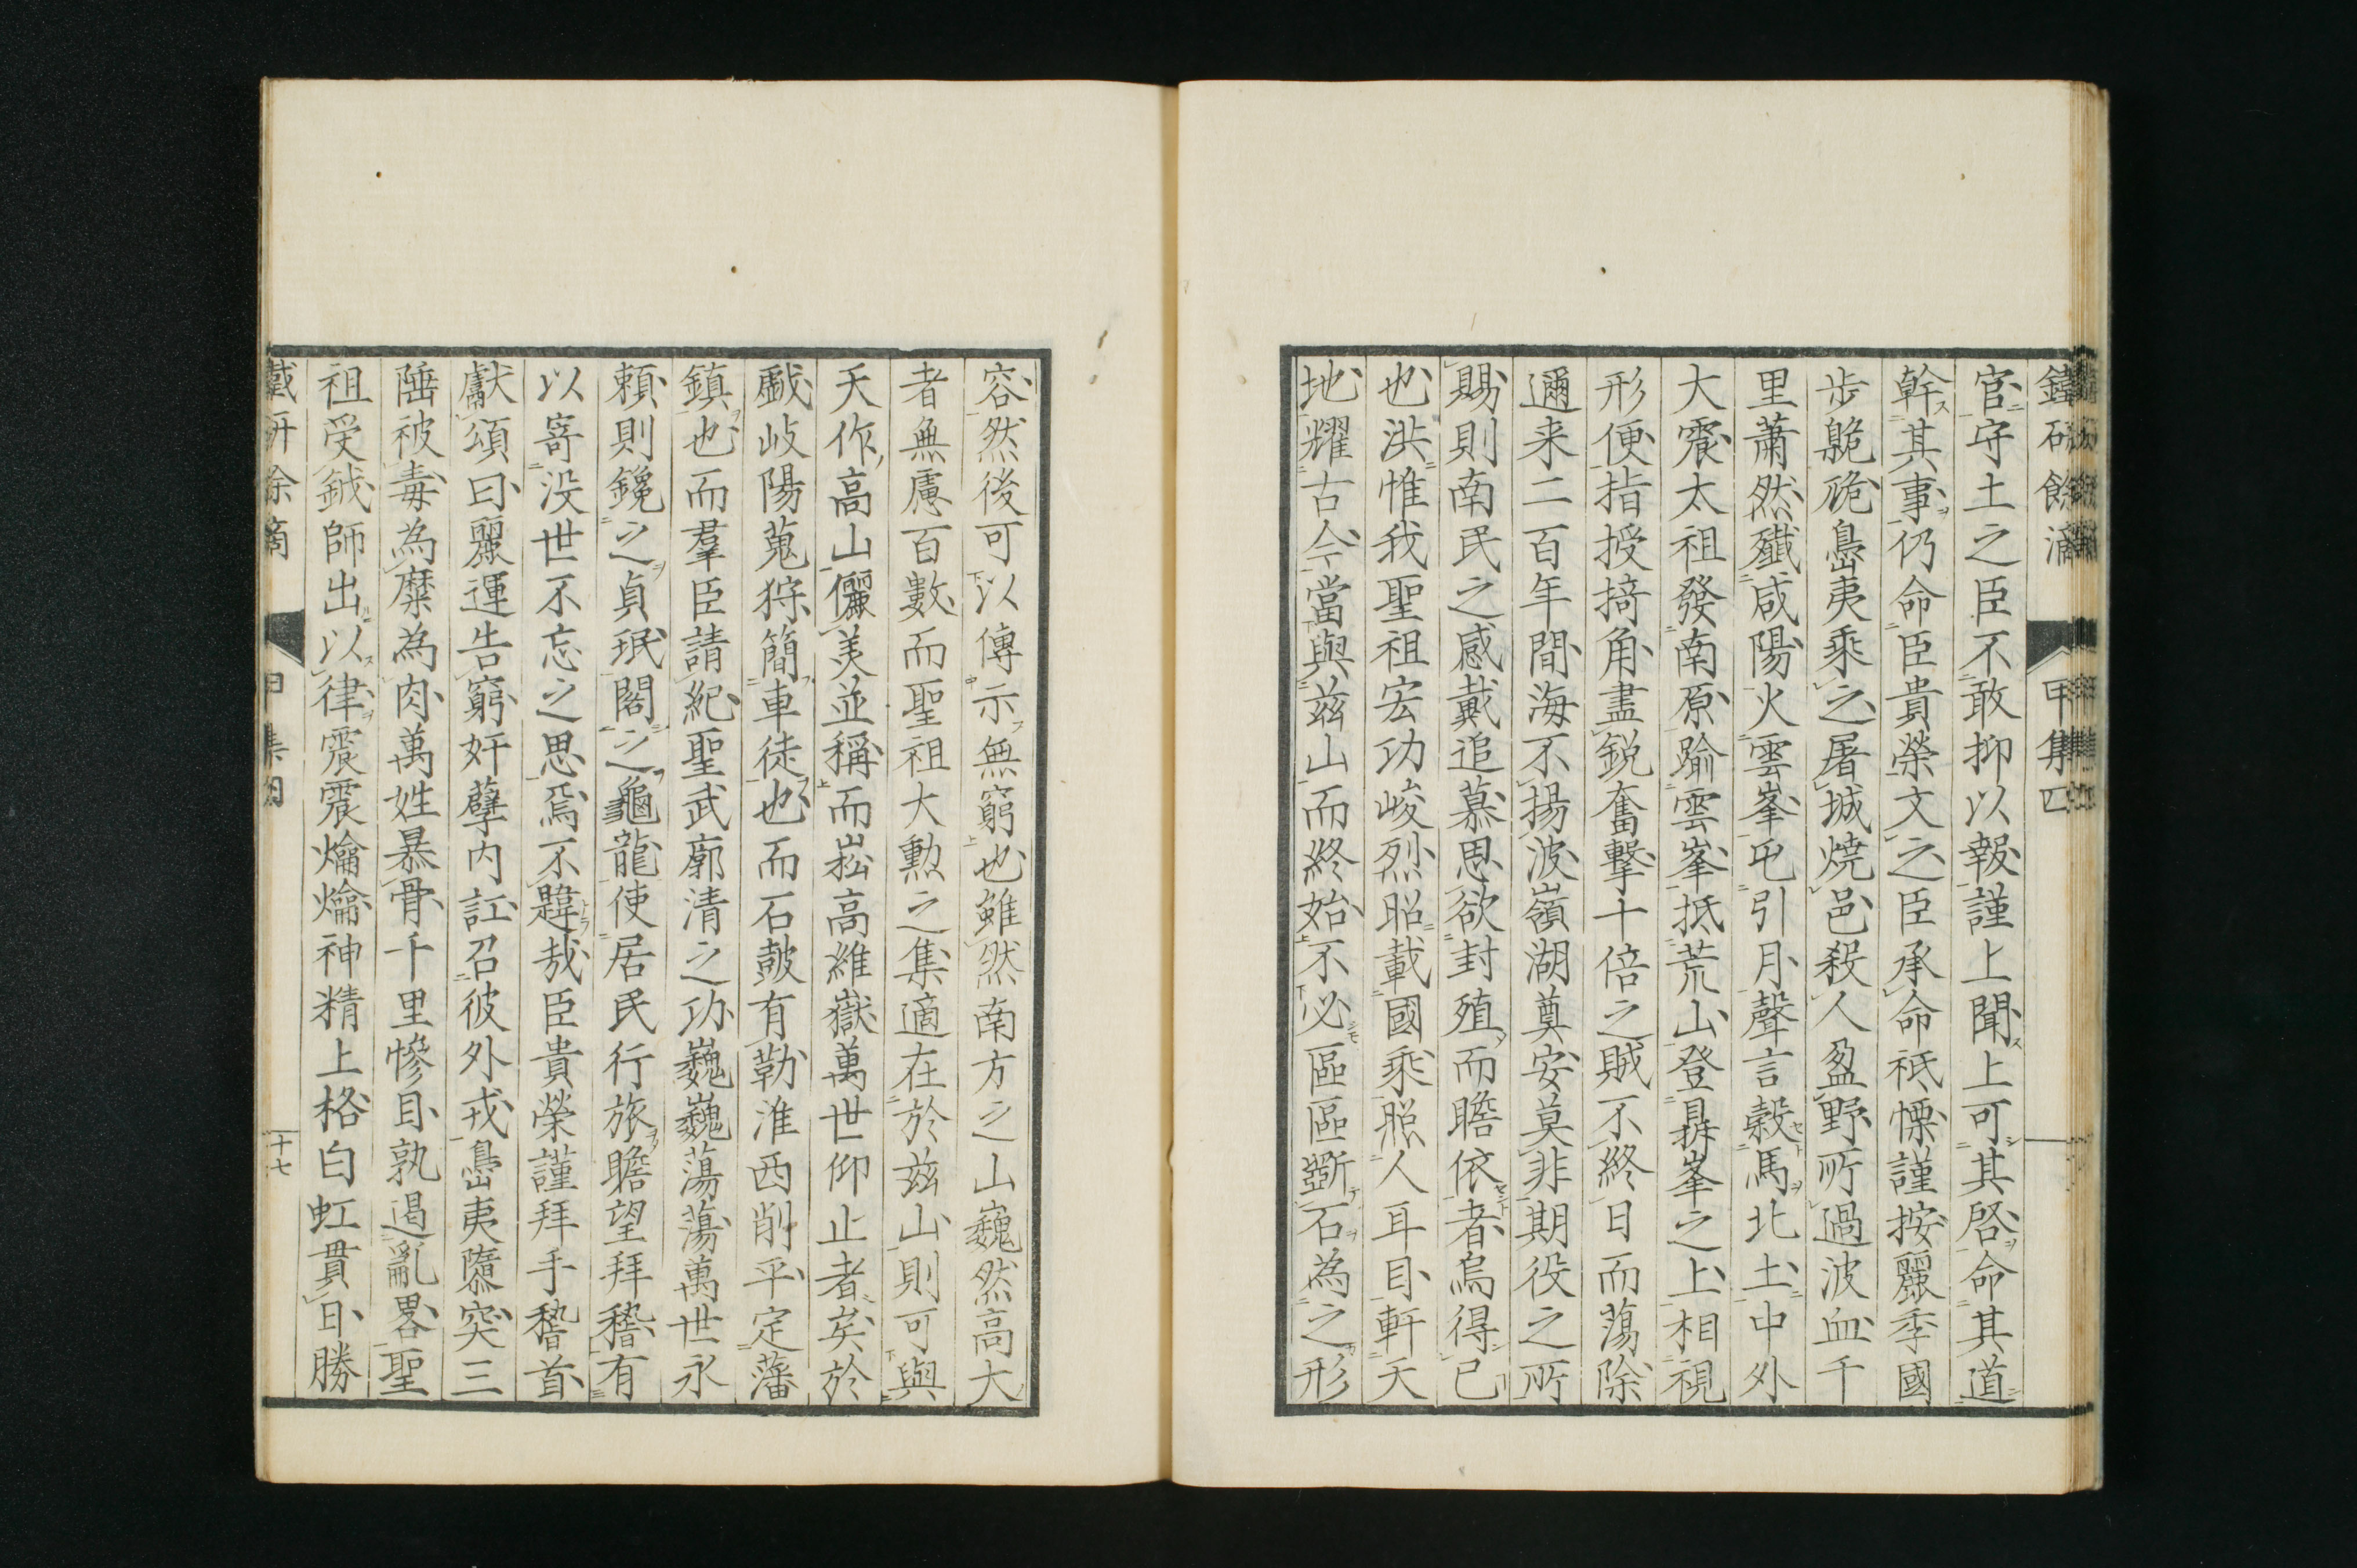 官守土之臣不敢抑以報謹上聞上可其啓命其道
幹其事仍命臣貴榮文之臣承命祗慄謹按麗季國
步臲卼島夷乘之屠城燒邑殺人盈野所過波血千
里蕭然殲咸陽火雲峯屯引月聲言穀馬北土中外
大震太祖發南原踰雲峯抵荒山登鼎峯之上相視
形便指授掎角盡銳奮擊十倍之賊不終日而蕩除
邇来二百年間海不揚波嶺湖奠安莫非期役之所
賜則南民之感戴追慕思欲封殖而瞻依者烏得已
也洪惟我聖祖宏功峻烈昭載國乘照人耳目軒天
地耀古今當與兹山而終始不必區區斲石為之形
容然後可以傳示無窮也雖然南方之山巍然高大
者無慮百數而聖祖大勲之集適在於兹山則可與
天作高山儷美並稱而崧高維嶽萬世仰止者矣於
戲岐陽蒐狩簡車徒也而石鼓有勒淮西削平定藩
鎮也而羣臣請紀聖武廓清之功巍巍蕩蕩萬世永
賴則鑱之貞珉閣之龜龍使居民行旅瞻望拜稽有
以寄没世不忘之思焉不韙哉臣貴榮謹拜手稽首
獻頌曰麗運告窮奸孽内訌召彼外戎島夷隳突三
陲被毒為糜為肉萬姓暴骨千里慘目孰遏亂畧聖
祖受鉞師出以律震震爚爚神精上格白虹貫日勝
十七